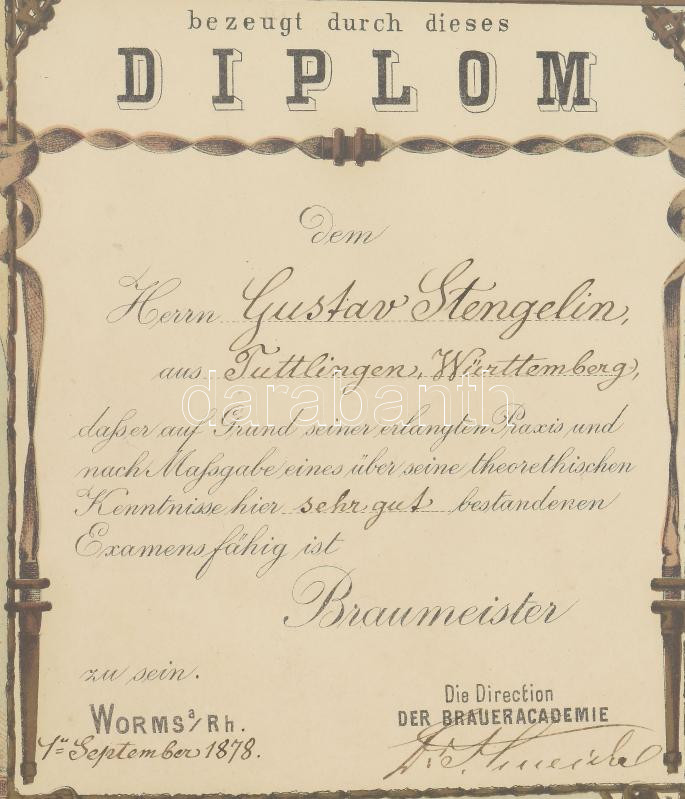 bezeugt durch dieses
DIPLOM
dem
Herrn Gustav Stengelin,
aus Tuttlingen, Württemberg,
darabanth
daſs er auf Grund seiner erlangten Praxis und
nach Maſsgabe eines über seine theorethischen
Kenntnisse hier sehr gut bestandenen
Examens fähig ist
Braumeister
zu sein.
Die Direction
WORMS a/Rh. DER BRAUERACADEMIE
September 1878.